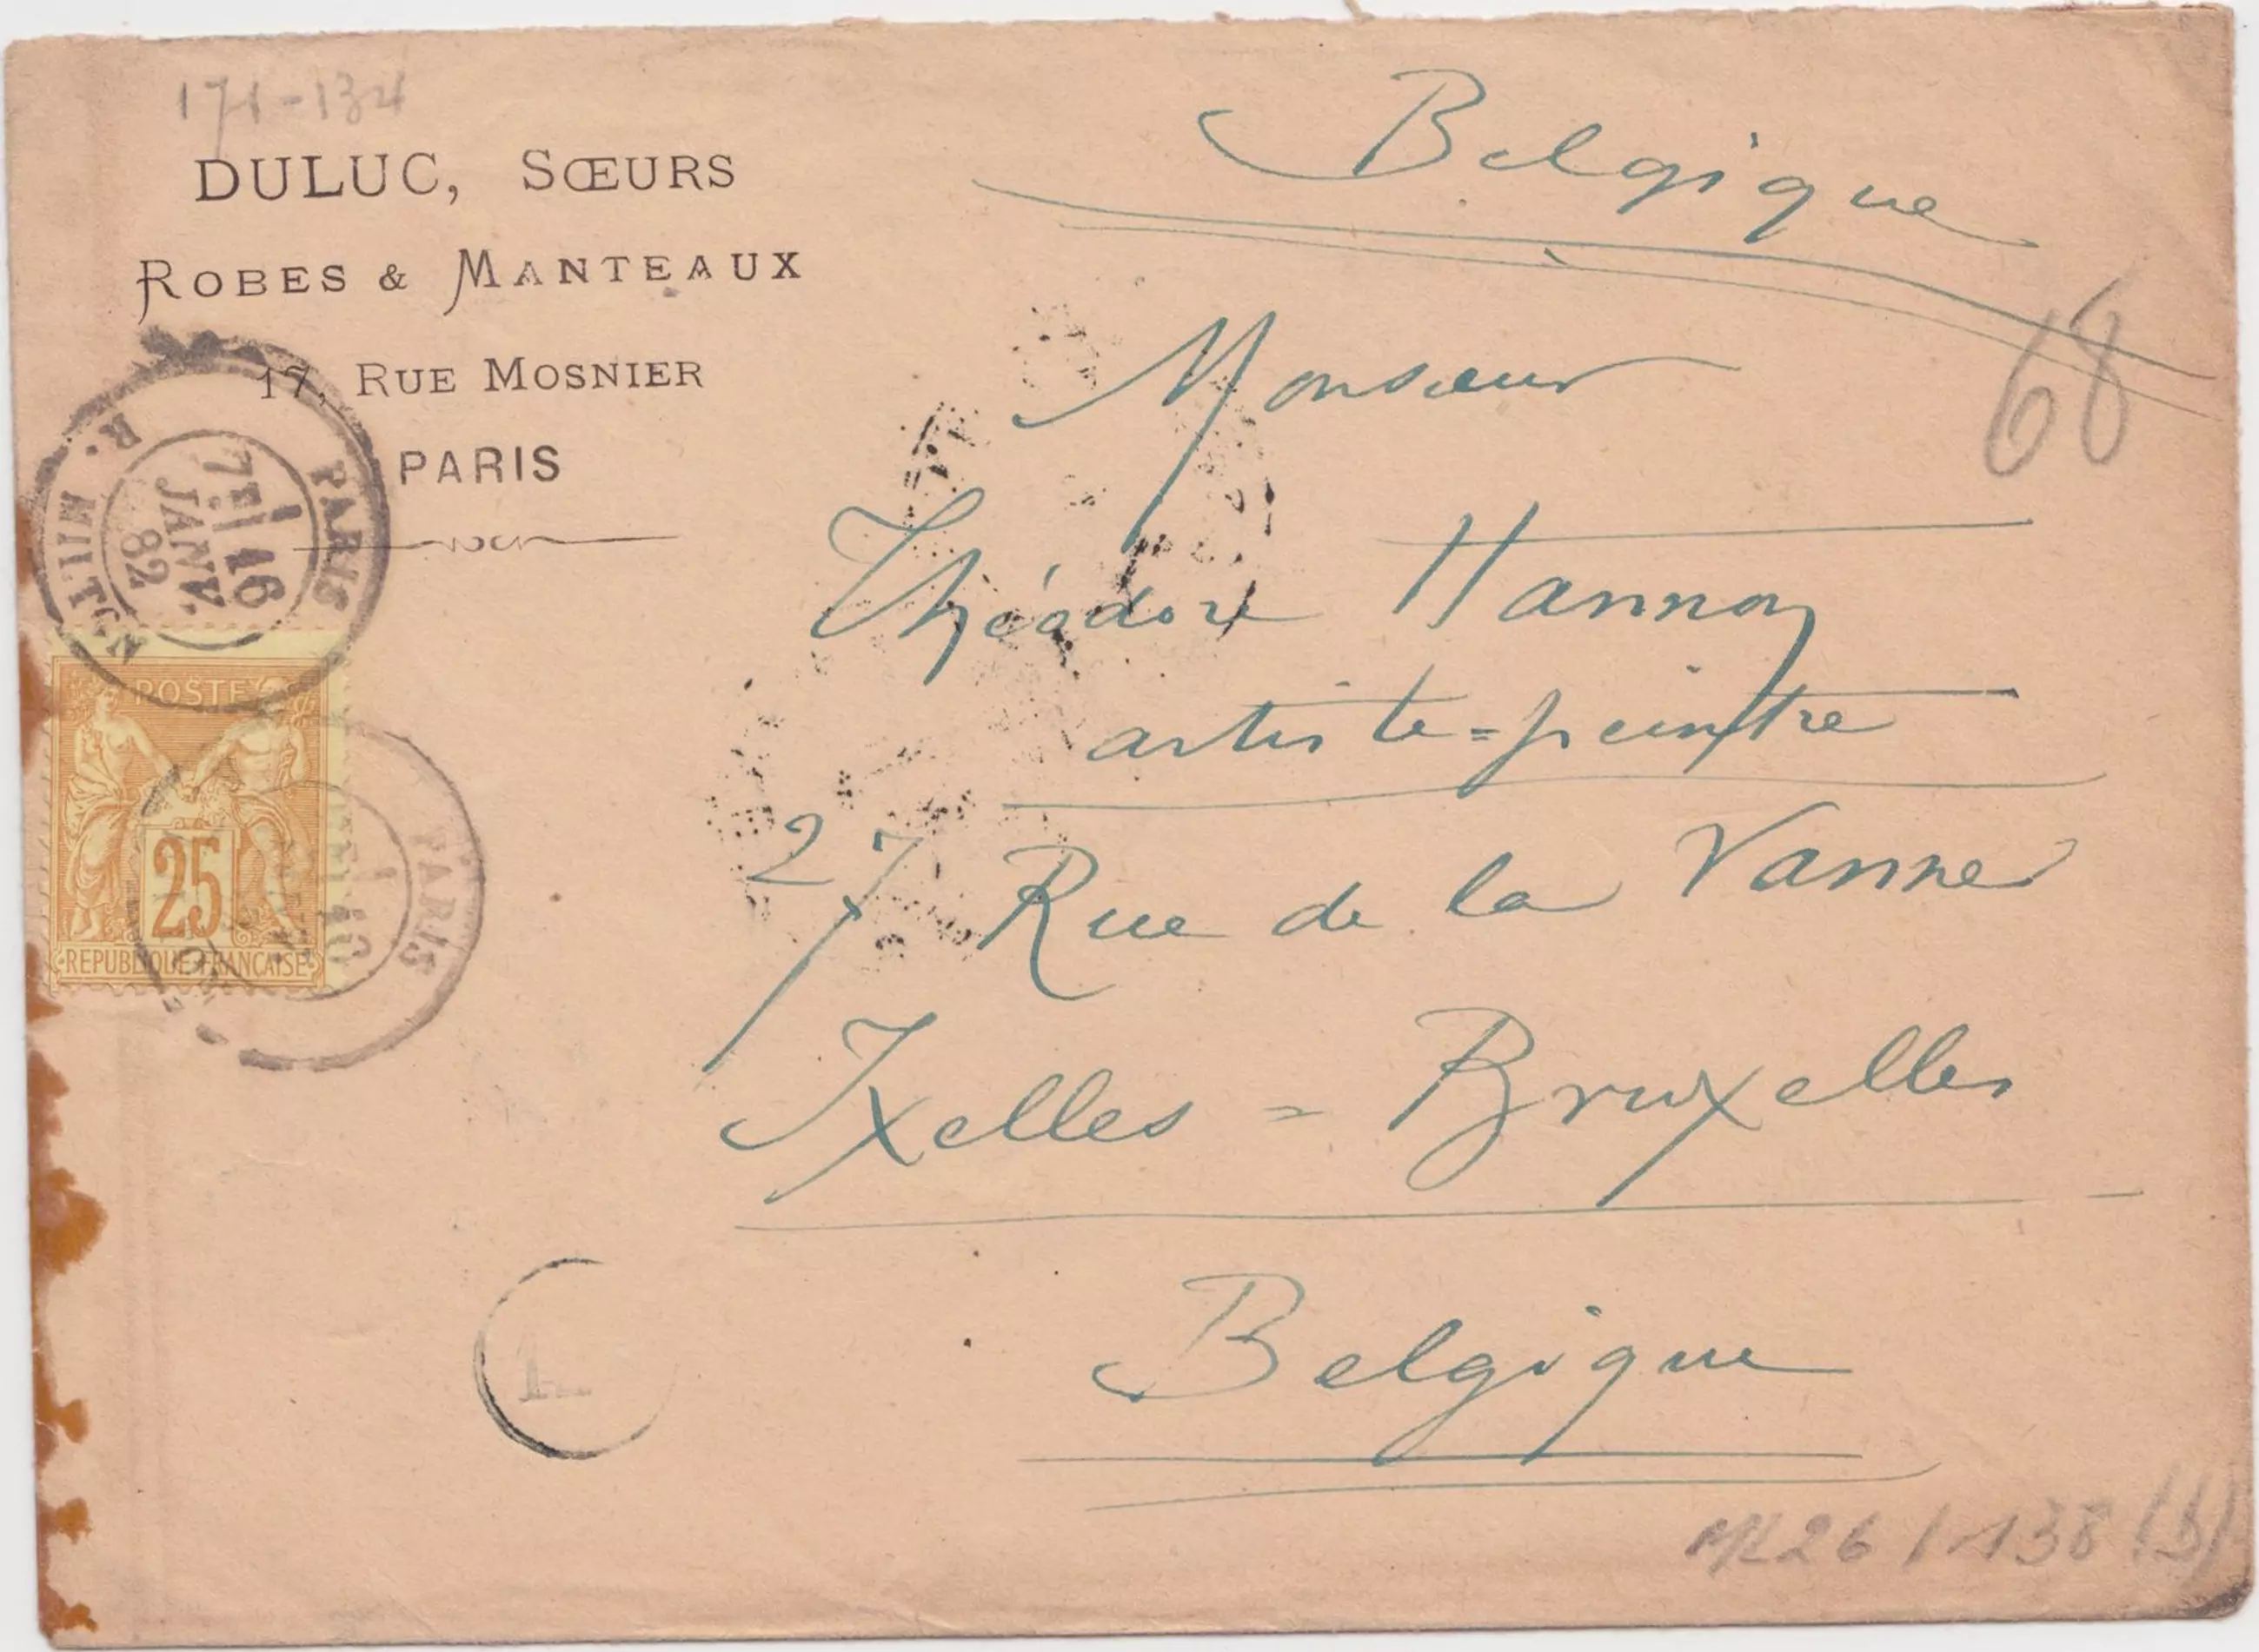 171-134
DULUC, SŒURS
ROBES & MANTEAUX
17, RUE MOSNIER
PARIS
PARIS
R. MILTON
7E 16
JANV.
82
POSTE
25
REPUBLIQUE FRANCAISE
PARIS
Belgique
68
Monsieur
Théodore Hannon
artiste=peintre
27 Rue de la Vanne
Ixelles = Bruxelles
Belgique
ML 26 / 138 (b)